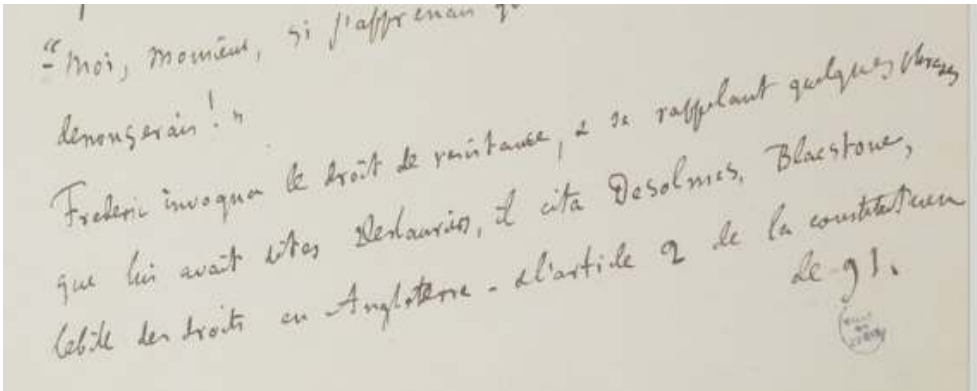 “- Moi, Monsieur, si j'apprenais
denonçerais ! »
Frederic invoqua le droit de resistance, & se rappelant quelques phrases
que lui avait dites Deslauriers, il cita Desolmes, Blacstone,
le bill des droits en Angleterre - & l'article 2 de la constitution
de 91.